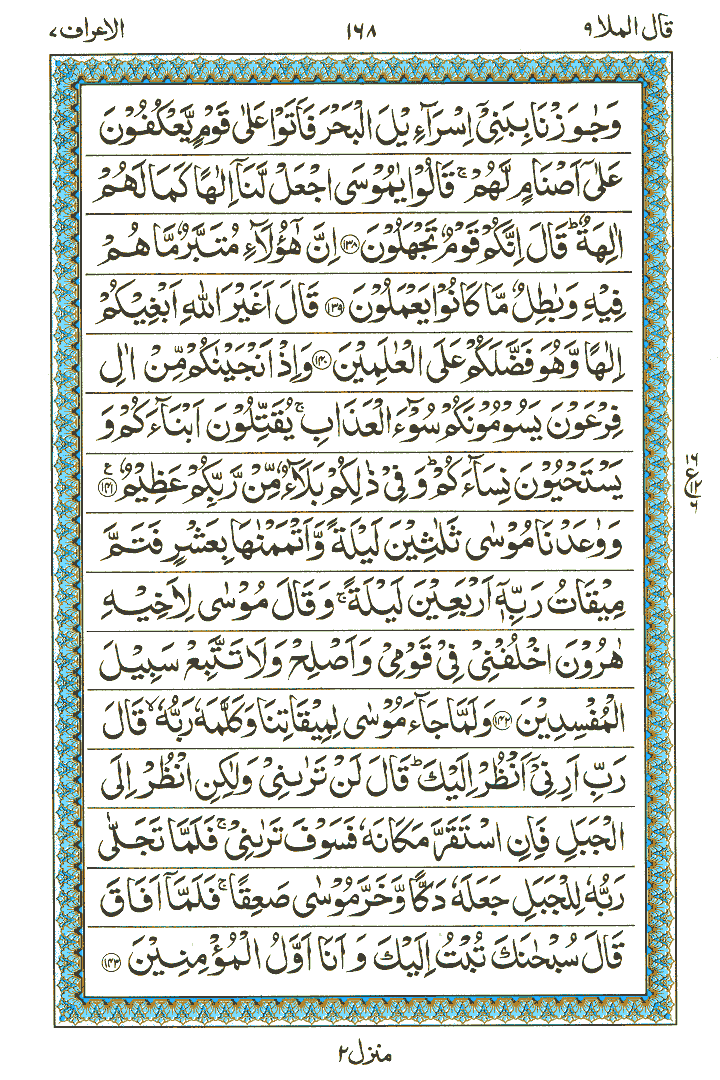 قال الملا ٩ ١٦٨ الاعراف ٧
وَجٰوَزْنَا بِبَنِیْۤ اِسْرَآءِیْلَ الْبَحْرَ فَاَتَوْا عَلٰی قَوْمٍ یَّعْكُفُوْنَ
عَلٰۤی اَصْنَامٍ لَّهُمْ ۚ قَالُوْا یٰمُوْسَی اجْعَلْ لَّنَاۤ اِلٰهًا كَمَا لَهُمْ
اٰلِهَةٌ ؕ قَالَ اِنَّكُمْ قَوْمٌ تَجْهَلُوْنَ ﴿۱۳۸﴾ اِنَّ هٰۤؤُلَآءِ مُتَبَّرٌ مَّا هُمْ
فِیْهِ وَبٰطِلٌ مَّا كَانُوْا یَعْمَلُوْنَ ﴿۱۳۹﴾ قَالَ اَغَیْرَ اللّٰهِ اَبْغِیْكُمْ
اِلٰهًا وَّهُوَ فَضَّلَكُمْ عَلَی الْعٰلَمِیْنَ ﴿۱۴۰﴾ وَاِذْ اَنْجَیْنٰكُمْ مِّنْ اٰلِ
فِرْعَوْنَ یَسُوْمُوْنَكُمْ سُوْٓءَ الْعَذَابِ ۚ یُقَتِّلُوْنَ اَبْنَآءَكُمْ وَ
یَسْتَحْیُوْنَ نِسَآءَكُمْ ؕ وَفِیْ ذٰلِكُمْ بَلَآءٌ مِّنْ رَّبِّكُمْ عَظِیْمٌ ﴿۱۴۱﴾ ع
١٦
ع ١٢
٦
وَوٰعَدْنَا مُوْسٰی ثَلٰثِیْنَ لَیْلَةً وَّاَتْمَمْنٰهَا بِعَشْرٍ فَتَمَّ
مِیْقَاتُ رَبِّهٖۤ اَرْبَعِیْنَ لَیْلَةً ۚ وَقَالَ مُوْسٰی لِاَخِیْهِ
هٰرُوْنَ اخْلُفْنِیْ فِیْ قَوْمِیْ وَاَصْلِحْ وَلَا تَتَّبِعْ سَبِیْلَ
الْمُفْسِدِیْنَ ﴿۱۴۲﴾ وَلَمَّا جَآءَ مُوْسٰی لِمِیْقَاتِنَا وَكَلَّمَهٗ رَبُّهٗ ۙ قَالَ
رَبِّ اَرِنِیْۤ اَنْظُرْ اِلَیْكَ ؕ قَالَ لَنْ تَرٰىنِیْ وَلٰكِنِ انْظُرْ اِلَی
الْجَبَلِ فَاِنِ اسْتَقَرَّ مَكَانَهٗ فَسَوْفَ تَرٰىنِیْ ۚ فَلَمَّا تَجَلّٰی
رَبُّهٗ لِلْجَبَلِ جَعَلَهٗ دَكًّا وَّخَرَّ مُوْسٰی صَعِقًا ۚ فَلَمَّاۤ اَفَاقَ
قَالَ سُبْحٰنَكَ تُبْتُ اِلَیْكَ وَاَنَا اَوَّلُ الْمُؤْمِنِیْنَ ﴿۱۴۳﴾
منزل ٢